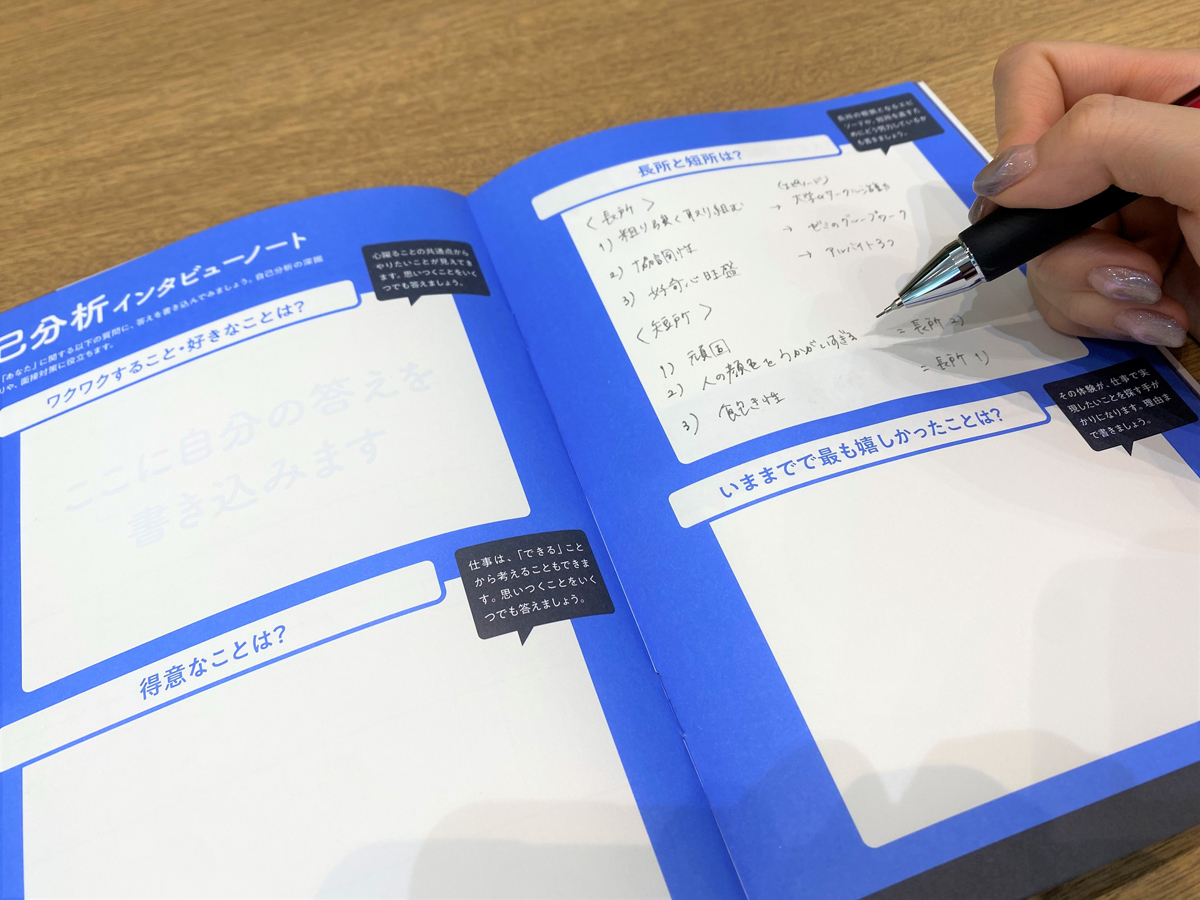 己分析インタビューノート
「あなた」に関する以下の質問に、答えを書き込んでみましょう。自己分析の深掘
りや、面接対策に役立ちます。
ワクワクすること・好きなことは?
心躍ることの共通点から
やりたいことが見えてき
ます。思いつくことをいく
つでも答えましょう。
ここに自分の答えを
書き込みます
得意なことは?
仕事は、「できる」こと
から考えることもできま
す。思いつくことをいく
つでも答えましょう。
長所と短所は?
長所の根拠となるエピ
ソードや、短所を直すた
めにどう努力しているか
も書きましょう。
〈長所〉 (エピソード)
1) 粘り強く取り組む → 大学のサークル活動
2) 協調性 → ゼミのグループワーク
3) 好奇心旺盛 → アルバイト3つ
〈短所〉
1) 頑固
2) 人の顔色をうかがいすぎる = 長所 2)
3) 飽き性 = 長所 1)
いままでで最も嬉しかったことは?
その体験が、仕事で実
現したいことを探す手が
かりになります。理由ま
で書きましょう。